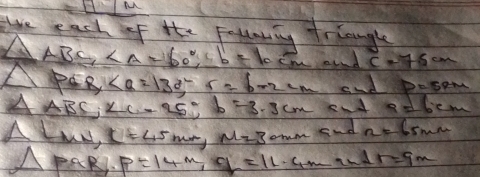 ve each of the following triangle
△ ABC, <A = 60°, b = 10cm and c = 7.5cm
△ PQR, <Q = 130°, r = 6.2cm and P = 5cm
△ ABC, <C = 95°, b = 3.3cm and a = 6cm
△ LMN, L = 45mm, M = 30mm and n = 65mm
△ PQR, P = 14m, q = 11.4m and r = 9m